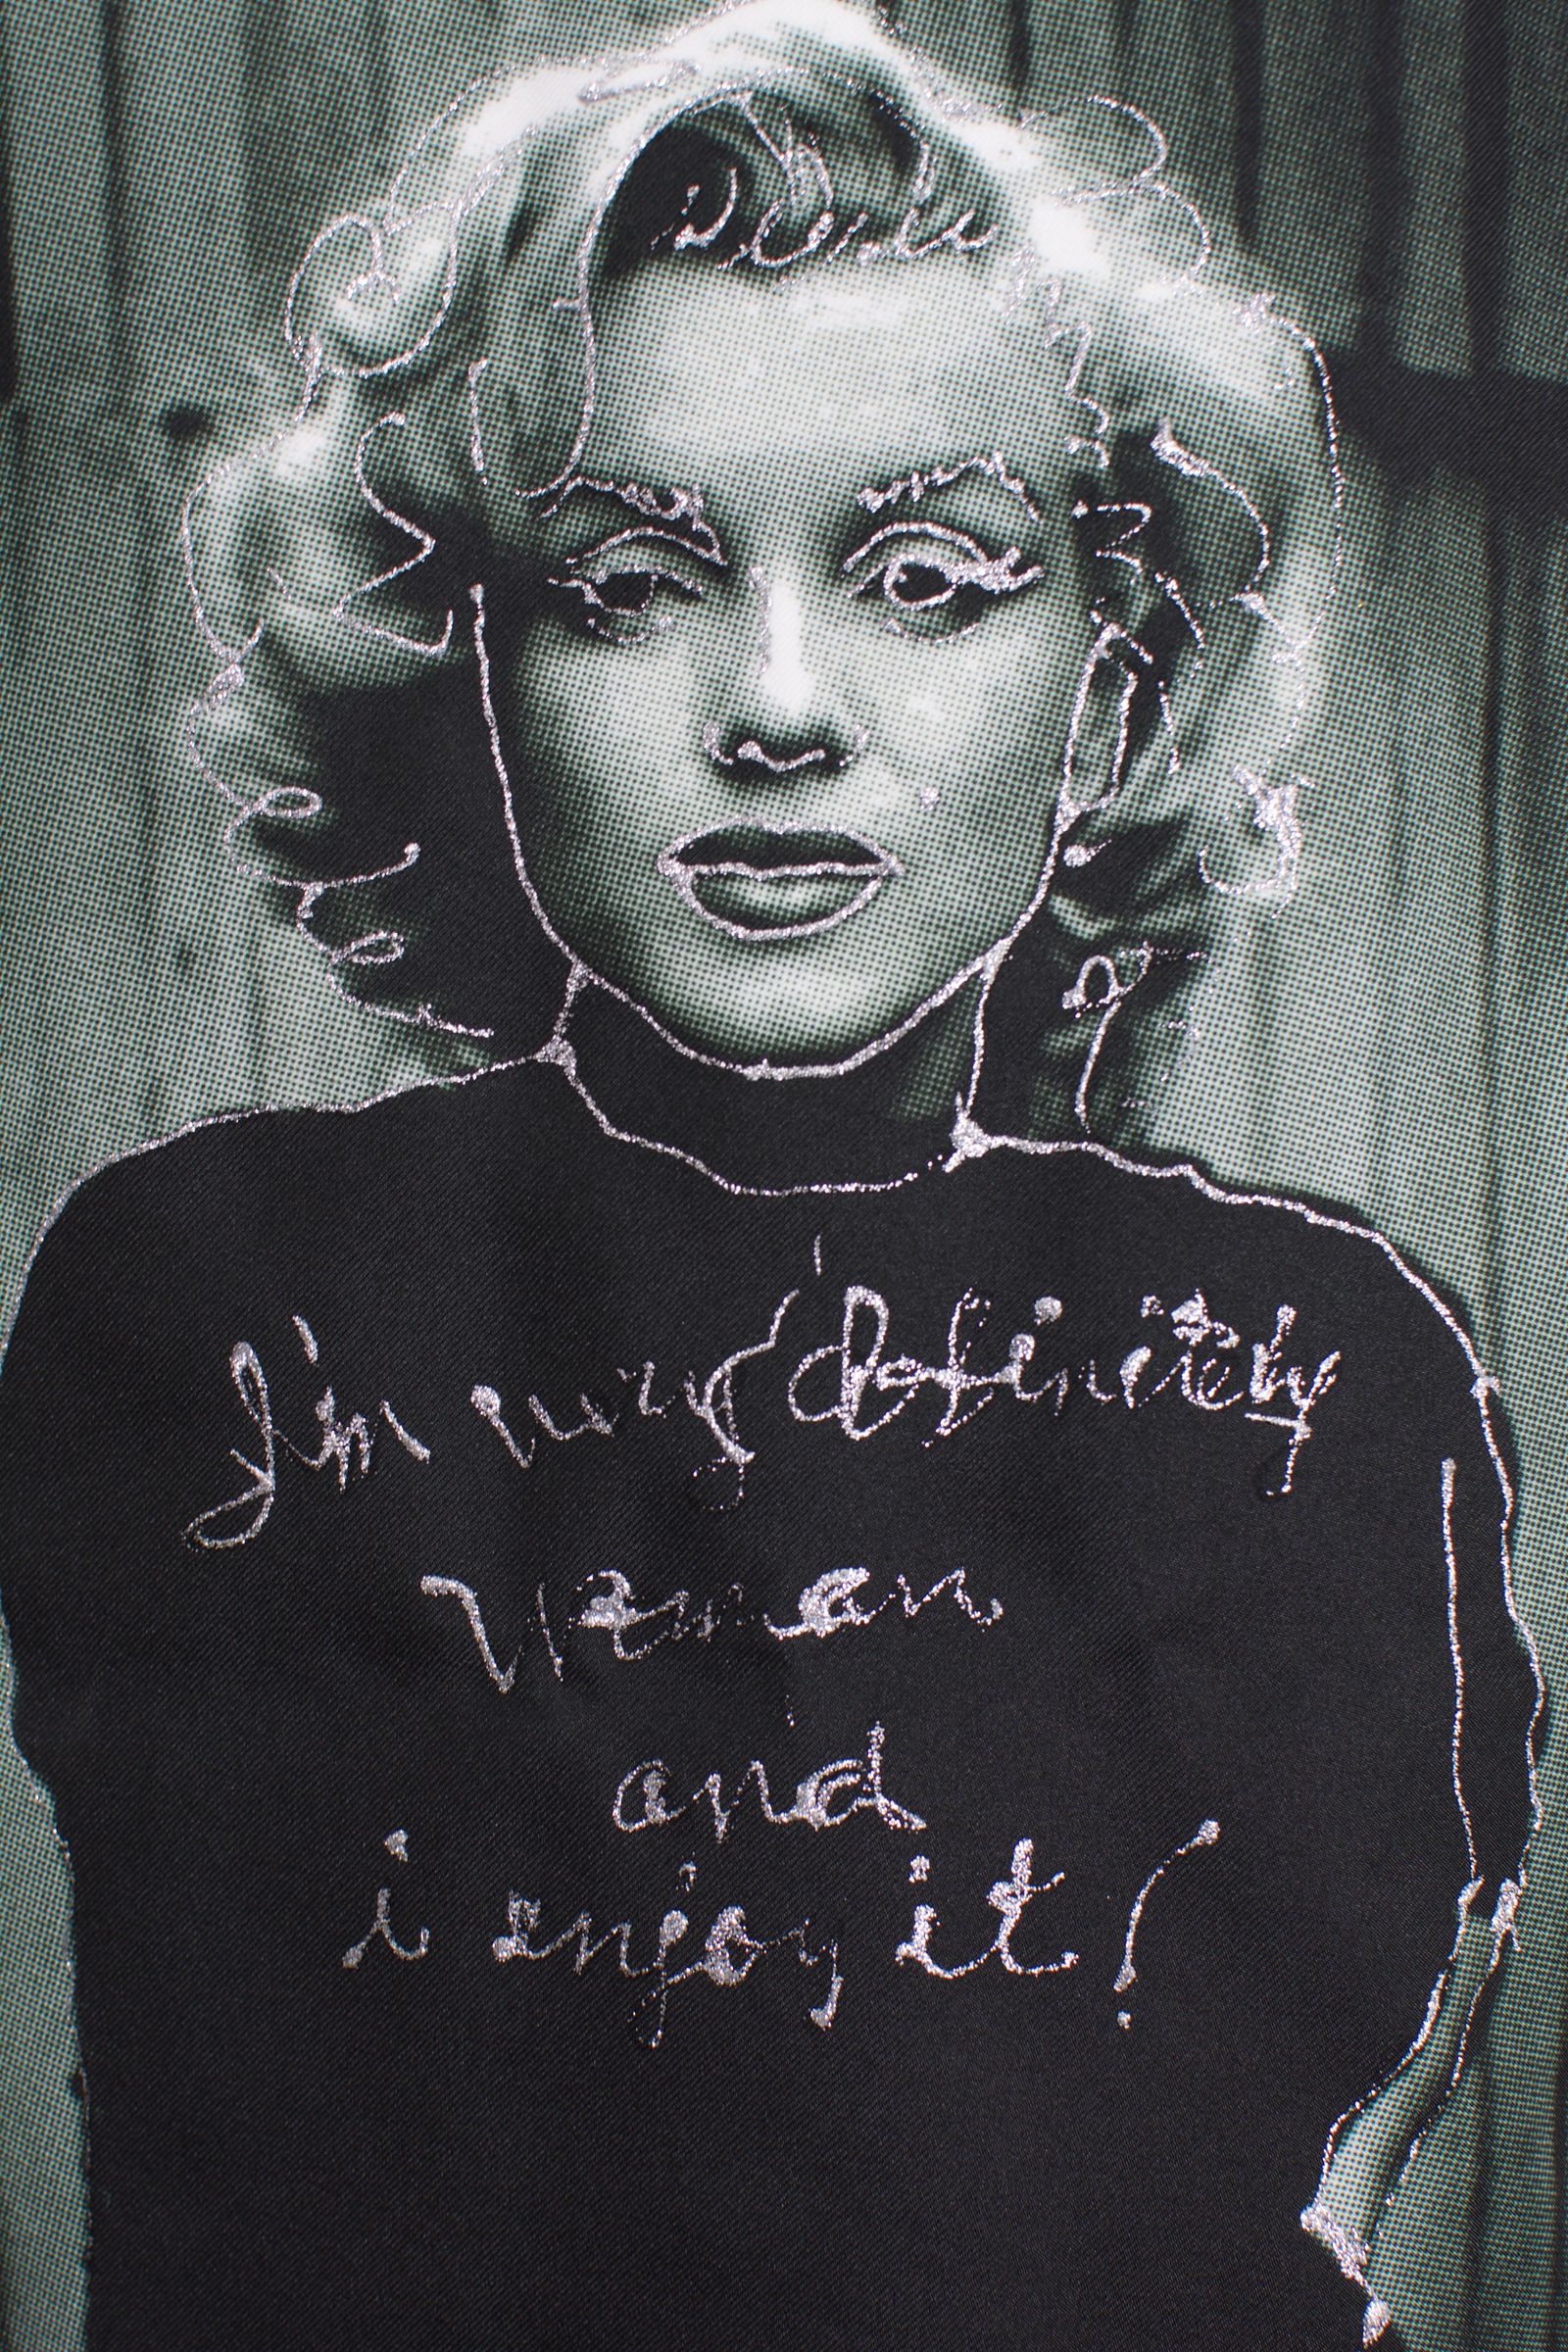 I'm very definitely
woman
and
i enjoy it!